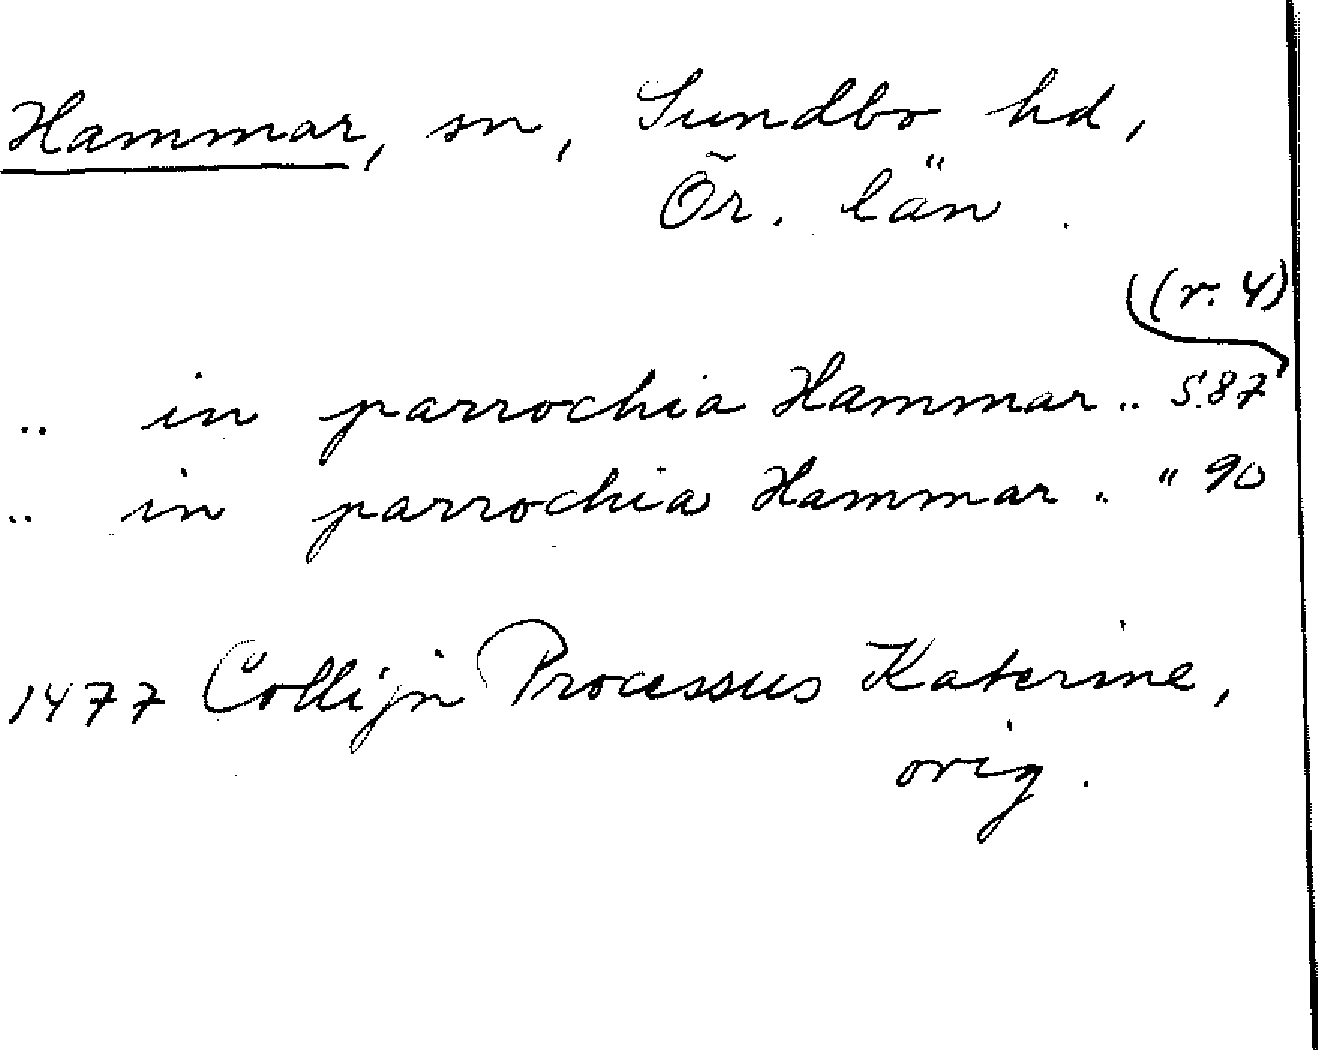 Hammar, sn, Sundbo hd,
Ör. län.
(r. 4)
.. in parrochia Hammar .. S.87
.. in parrochia Hammar .. " 90
1477 Collijn Processus Katerine,
orig.